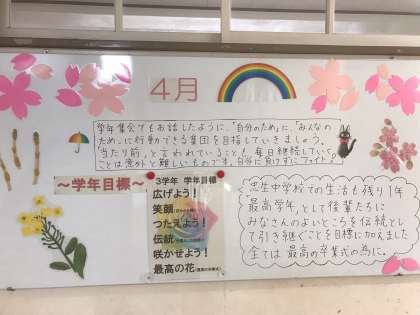 4月
学年集会でもお話したように、「自分のため」に、「みんなの
ため」に行動できる集団を目指していきましょう。
「当たり前」と言われていることも毎日継続していく
ことは意外と難しいものです。自分に負けずにファイト！
～学年目標～
3学年 学年目標
広げよう！
笑顔
つたえよう！
伝統
咲かせよう！
最高の花
忠生中学校での生活も残り1年
最高学年として後輩たちに
みなさんのよいところを伝統とし
て引き継ぐことを目標に加えました
全ては最高の卒業式の為に。